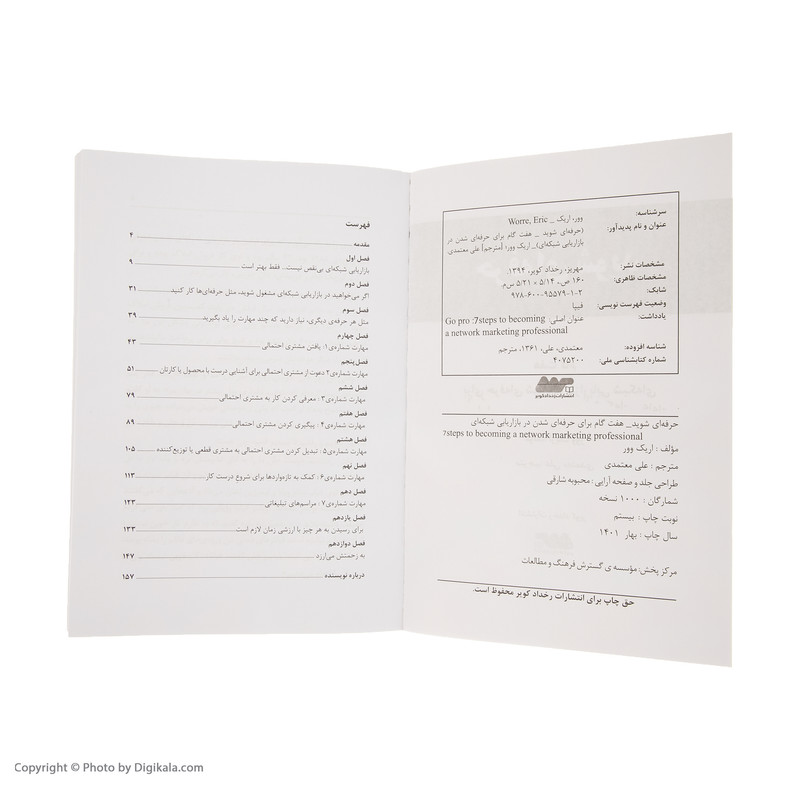 سرشناسه: وور، اریک _ Worre, Eric
عنوان و نام پدیدآور: (حرفه‌ای شوید _ هفت گام برای حرفه‌ای شدن در
بازاریابی شبکه‌ای)_ اریک وور؛ [مترجم] علی معتمدی
مشخصات نشر: مهریز، رخداد کویر، ۱۳۹۴.
مشخصات ظاهری: ۱۶۰ ص، ۵/۱۴ × ۵/۲۱ س‌م.
شابک: ۹۷۸-۶۰۰-۹۵۵۷۹-۱-۲
وضعیت فهرست نویسی: فیپا
یادداشت: عنوان اصلی: Go pro :7steps to becoming
a network marketing professional
شناسه افزوده: معتمدی، علی، ۱۳۶۱، مترجم
شماره کتابشناسی ملی: ۴۰۷۵۲۰۰
انتشارات رخداد کویر
حرفه‌ای شوید_ هفت گام برای حرفه‌ای شدن در بازاریابی شبکه‌ای
7steps to becoming a network marketing professional
مؤلف : اریک وور
مترجم : علی معتمدی
طراحی جلد و صفحه آرایی : محبوبه شارقی
شمارگان : ۱۰۰۰ نسخه
نوبت چاپ : بیستم
سال چاپ : بهار ۱۴۰۱
مرکز پخش: مؤسسه ی گسترش فرهنگ و مطالعات
حق چاپ برای انتشارات رخداد کویر محفوظ است.
فهرست
مقدمه ۴
فصل اول
بازاریابی شبکه‌ای بی‌نقص نیست.. فقط بهتر است ۹
فصل دوم
اگر می‌خواهید در بازاریابی شبکه‌ای مشغول شوید، مثل حرفه‌ای‌ها کار کنید. ۳۱
فصل سوم
مثل هر حرفه‌ی دیگری، نیاز دارید که چند مهارت را یاد بگیرید ۳۹
فصل چهارم
مهارت شماره‌ی۱: یافتن مشتری احتمالی ۴۳
فصل پنجم
مهارت شماره‌ی۲ دعوت از مشتری احتمالی برای آشنایی درست با محصول یا کارتان ۵۱
فصل ششم
مهارت شماره‌ی۳ : معرفی کردن کار به مشتری احتمالی ۷۹
فصل هفتم
مهارت شماره‌ی۴ : پیگیری کردن مشتری احتمالی ۸۹
فصل هشتم
مهارت شماره‌ی۵ : تبدیل کردن مشتری احتمالی به مشتری قطعی یا توزیع‌کننده ۱۰۵
فصل نهم
مهارت شماره‌ی۶ : کمک به تازه‌واردها برای شروع درست کار ۱۱۳
فصل دهم
مهارت شماره‌ی۷ : مراسم‌های تبلیغاتی ۱۲۳
فصل یازدهم
برای رسیدن به هر چیز با ارزشی زمان لازم است ۱۳۳
فصل دوازدهم
به زحمتش می‌ارزد ۱۴۷
درباره نویسنده ۱۵۷
Copyright © Photo by Digikala.com